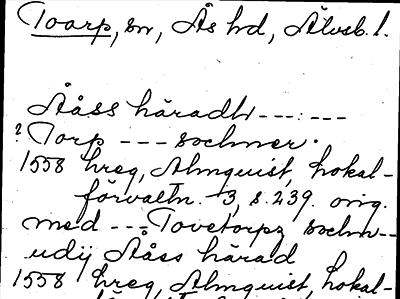 Toarp, sn, Ås hd, Älvsb. l.
Ååss häradh ---:---
? Torp --- sochner.
1558 hreg, Almquist, Lokal-
förvaltn. 3, s. 239. orig.
med --: Tovetorpz sochn--
udij Ååss härad
1558 hreg, Almquist, Lokal-